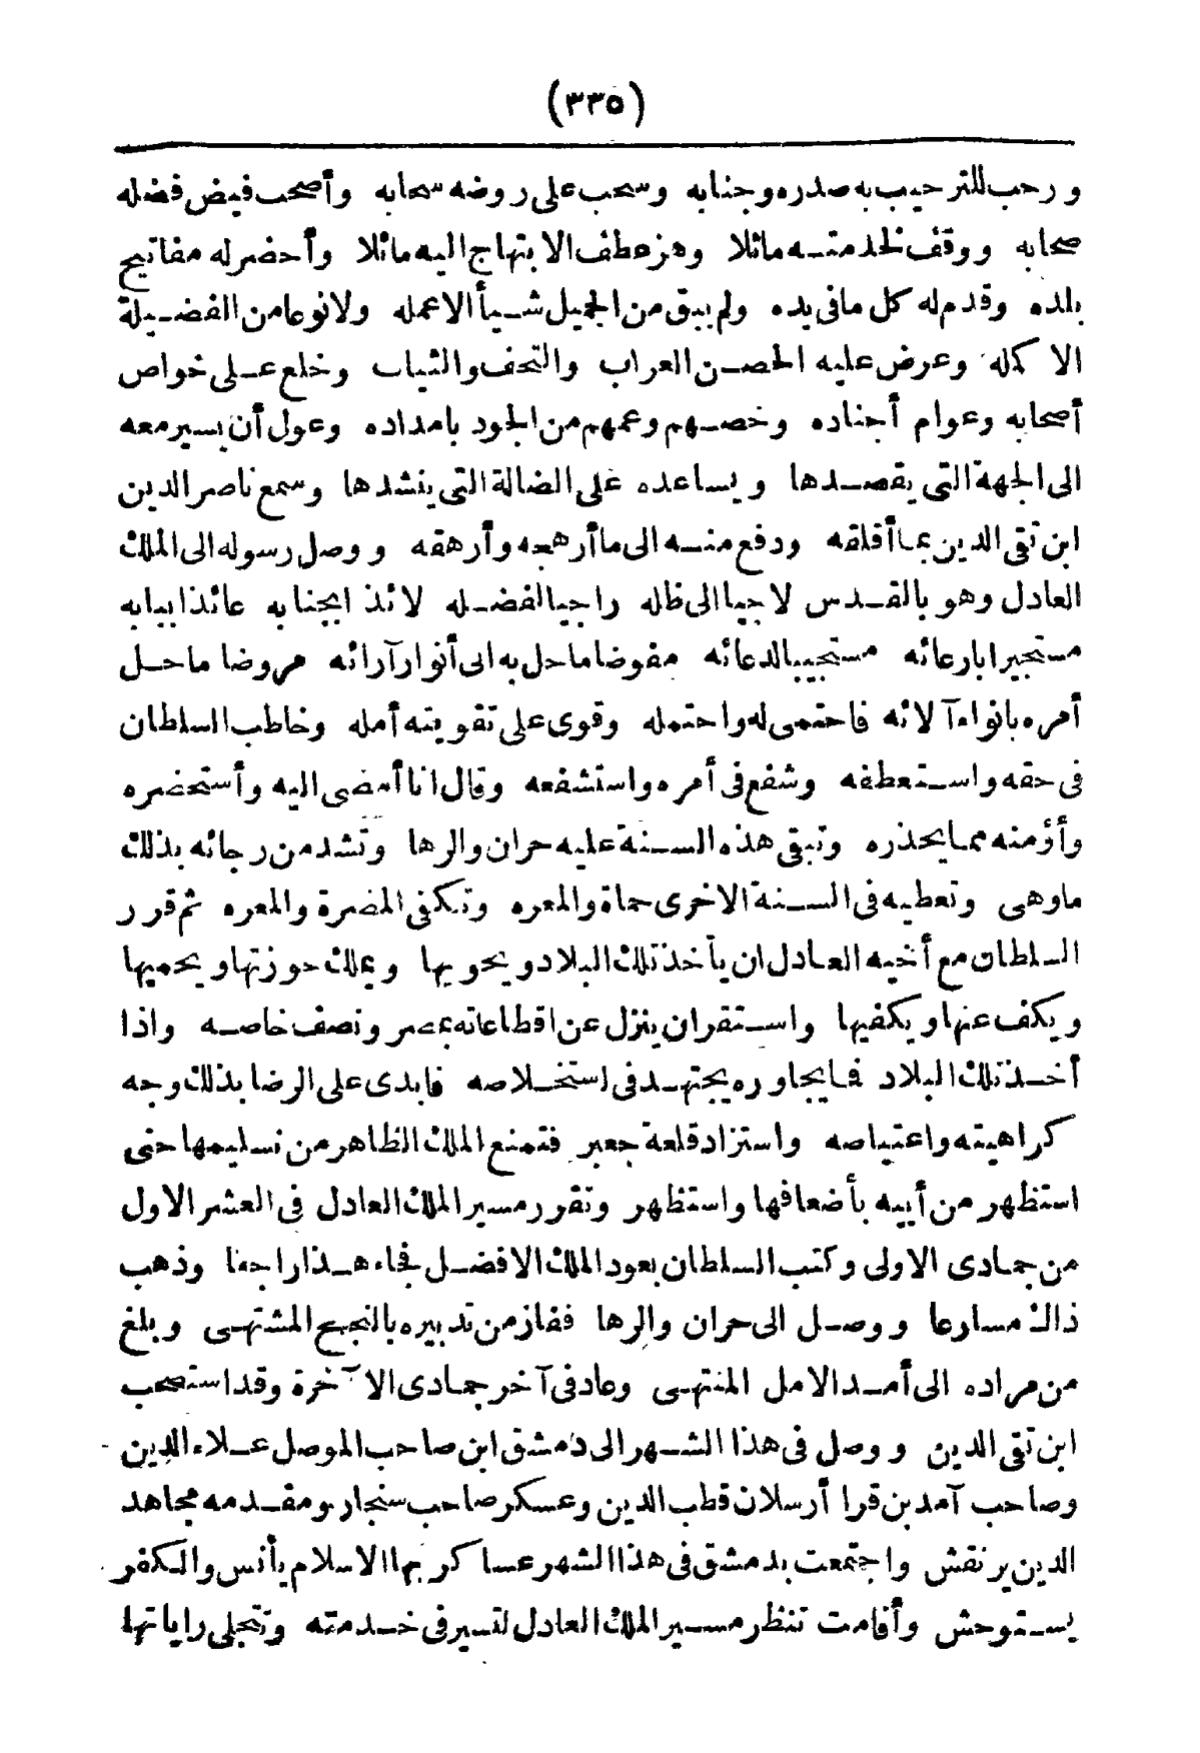 (٣٣٥)
ورحب للترحيب به صدره وجنابه وسحب على روضه سحابه وأصحب فيض فضله
صحابه ووقف لخدمته ماثلا وهز عطف الابتهاج اليه مائلا وأحضر له مفاتيح
بلده وقدم له كل مافى يده ولم يبق من الجميل شيأ الا عمله ولا نوعا من الفضيلة
الا كمله وعرض عليه الحصن العراب والتحف والثياب وخلع على خواص
أصحابه وعوام أجناده وخصهم وعمهم من الجود بامداده وعول أن يسير معه
الى الجهة التى يقصدها ويساعده على الضالة التى ينشدها وسمع ناصر الدين
ابن تقى الدين بما أقلقه ودفع منه الى ما أرهجه وأرهقه ووصل رسوله الى الملك
العادل وهو بالقدس لاجيا الى ظله راجيا لفضله لائذا بجنابه عائذا ببابه
مستجيرا بارعائه مستجيبا لدعائه مفوضا ما حل به الى أنوار آرائه مروضا ما حل
أمره بانواء آلائه فاحتمى له واحتمله وقوى على تقويته أمله وخاطب السلطان
فى حقه واستعطفه وشفع فى أمره واستشفعه وقال انا أمضى اليه وأستحضره
وأؤمنه مما يحذره وتبقى هذه السنة عليه حران والرها وتشد من رجائه بذلك
ما وهى وتعطيه فى السنة الاخرى حماة والمعره وتكفى المضرة والمعره ثم قرر
السلطان مع أخيه العادل ان يأخذ تلك البلاد ويحويها ويملك حوزتها ويحميها
ويكف عنها ويكفيها واستقر ان ينزل عن اقطاعاته بمصر ونصف خاصه واذا
أخذ تلك البلاد فما يجاوره يجتهد فى استخلاصه فابدى على الرضا بذلك وجه
كراهيته واعتياصه واستزاد قلعة جعبر فتمنع الملك الظاهر من تسليمها حتى
استظهر من أبيه بأضعافها واستظهر وتقرر مسير الملك العادل فى العشر الاول
من جمادى الاولى وكتب السلطان بعود الملك الافضل فجاء هذا راجعا وذهب
ذاك مسارعا ووصل الى حران والرها ففاز من تدبيره بالنجح المشتهى وبلغ
من مراده الى أمد الامل المنتهى وعاد فى آخر جمادى الآخرة وقد استصحب
ابن تقى الدين ووصل فى هذا الشهر الى دمشق ابن صاحب الموصل علاء الدين
وصاحب آمد بن قرا أرسلان قطب الدين وعسكر صاحب سنجار ومقدمه مجاهد
الدين يرنقش واجتمعت بدمشق فى هذا الشهر عساكر بها الاسلام يأنس والكفر
يستوحش وأقامت تنظر مسير الملك العادل لتسير فى خدمته وتتجلى راياتها